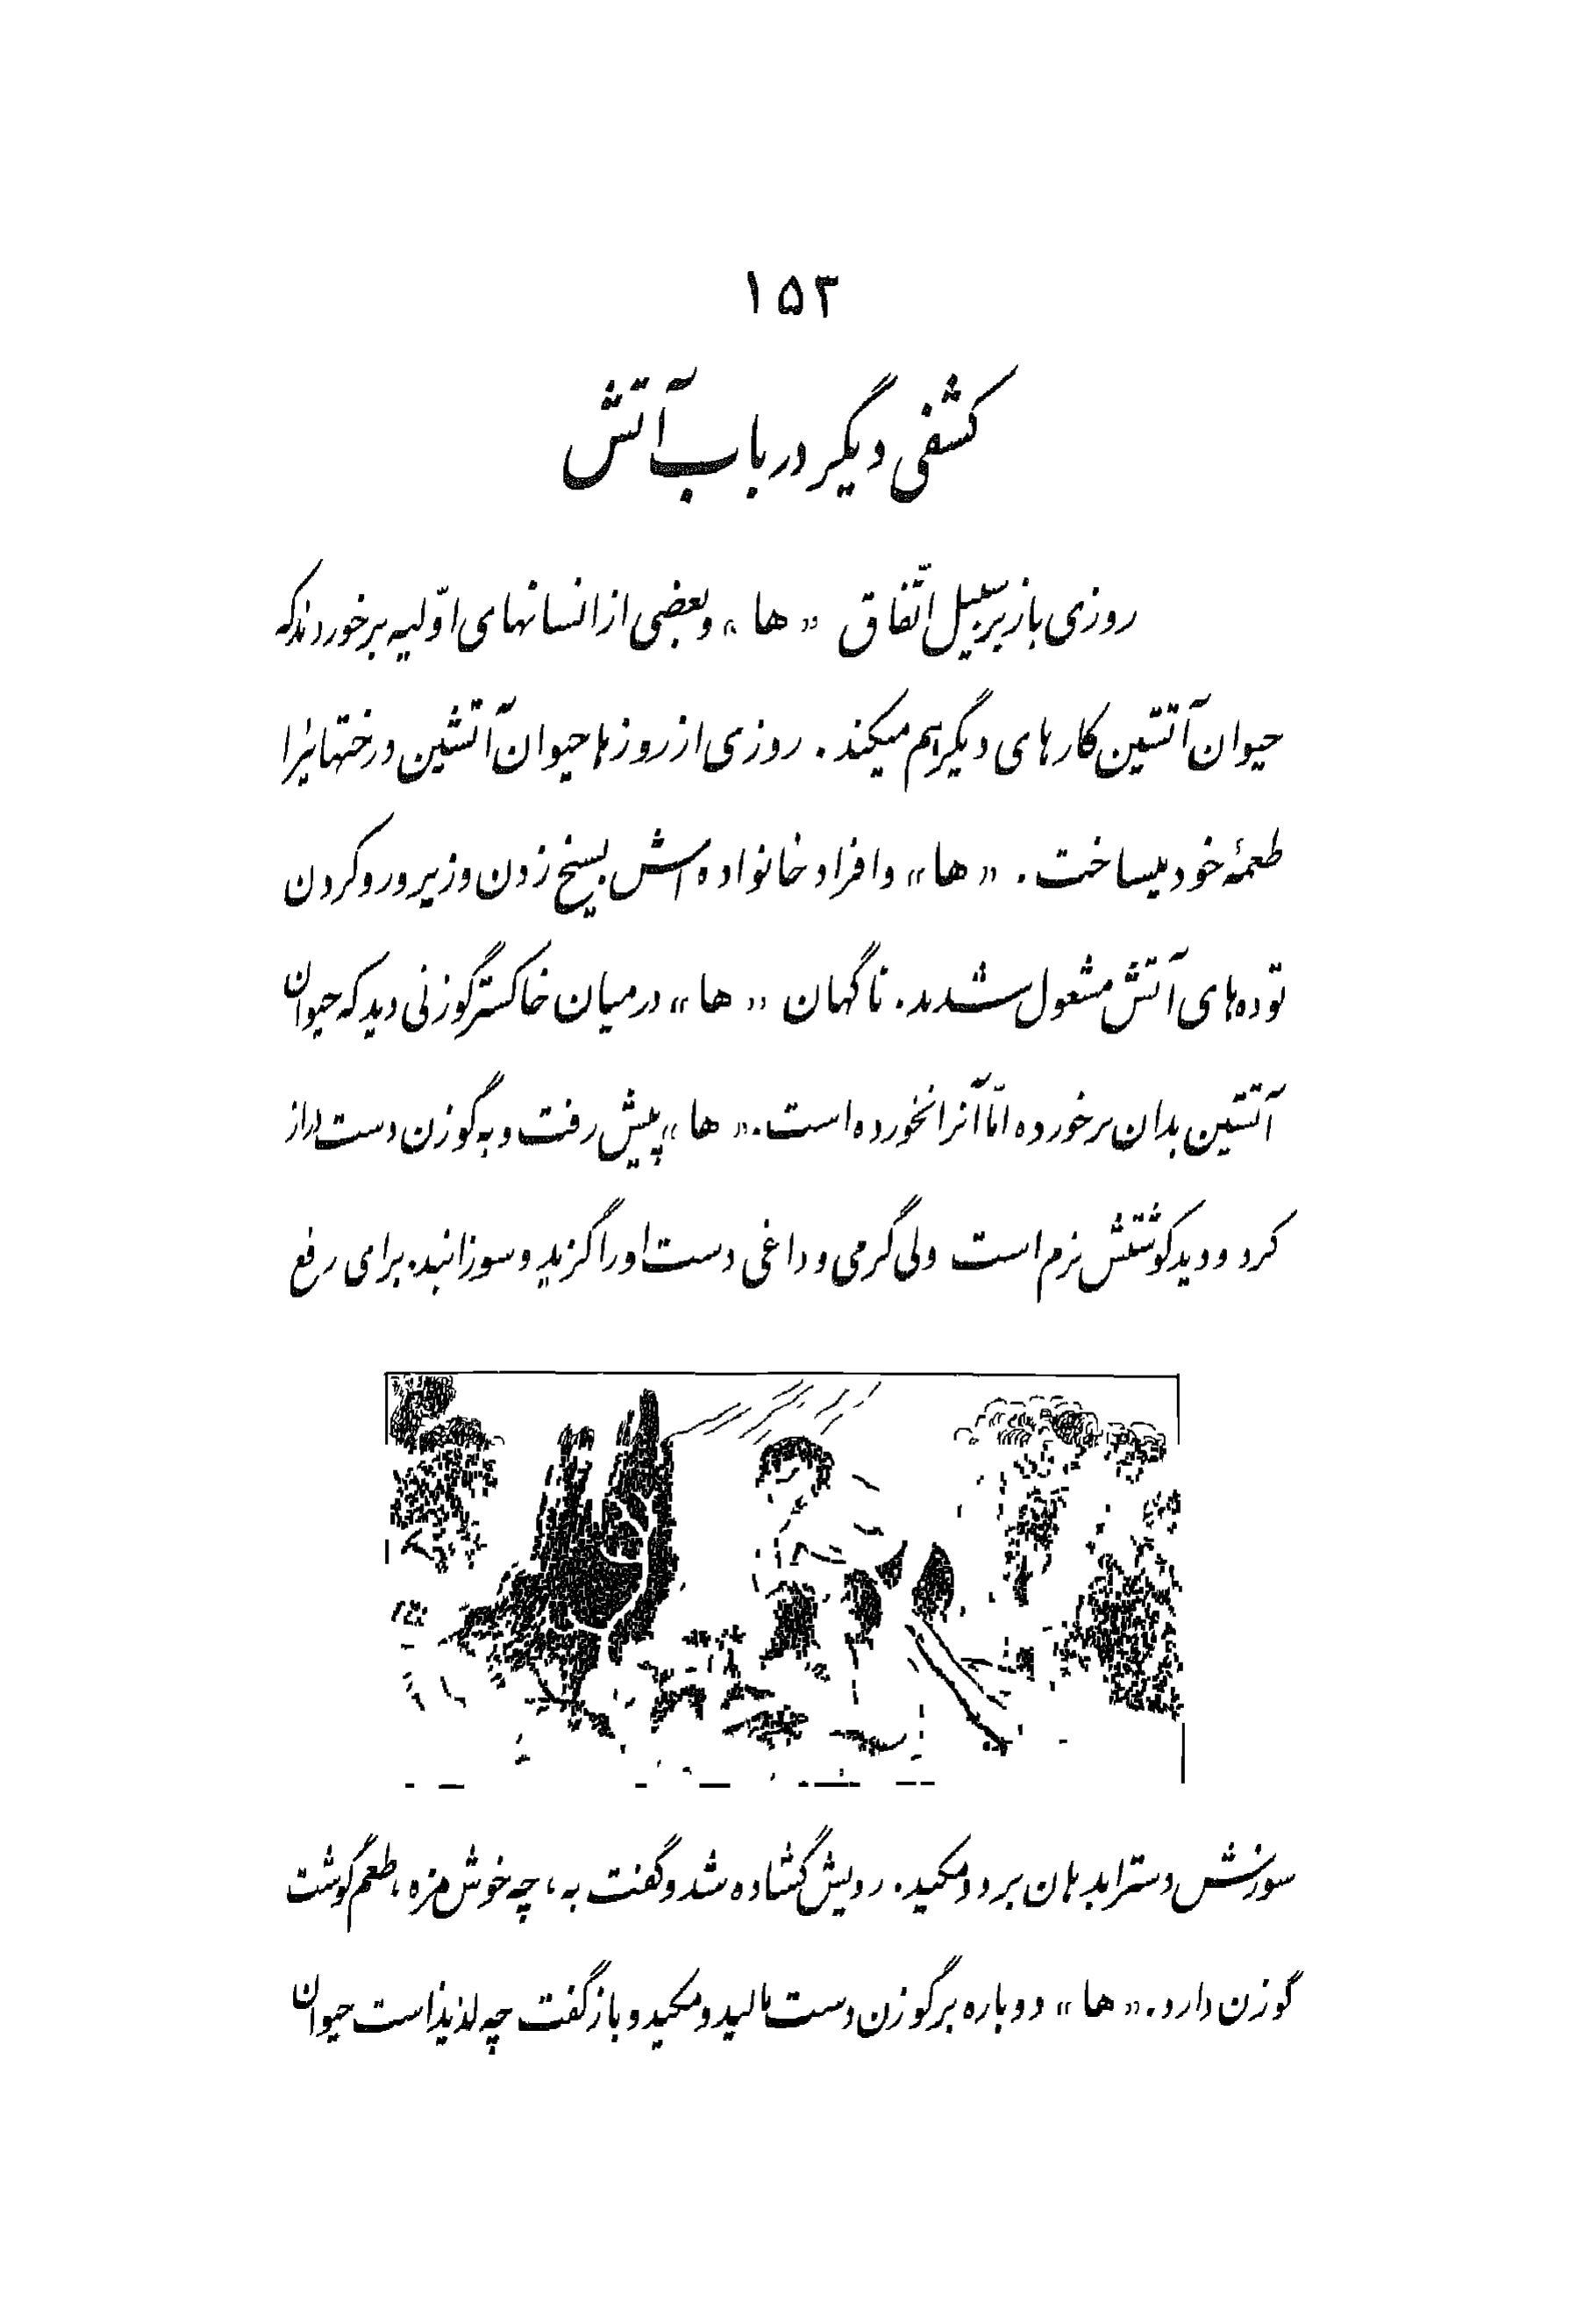 ۱۵۳
کشفی دیگر در باب آتش
روزی باز بر سبیل اتّفاق «ها» و بعضی از انسانهای اوّلیه برخوردند که
حیوان آتشین کارهای دیگر هم میکند. روزی از روزها حیوان آتشین درختهایرا
طعمهٔ خود میساخت. «ها» و افراد خانواده اش بسیخ زدن و زیر و رو کردن
توده‌های آتش مشغول شدند. ناگهان «ها» در میان خاکستر گوزنی دید که حیوان
آتشین بدان برخورده امّا آنرا نخورده است. «ها» پیش رفت و به گوزن دست دراز
کرد و دید گوشتش نرم است ولی گرمی و داغی دست او را گزید و سوزانید. برای رفع
سوزش دسترا بدهان برد و مکید. رویش گشاده شد و گفت به، چه خوش مزه، طعم گوشت
گوزن دارد. «ها» دوباره بر گوزن دست مالید و مکید و باز گفت چه لذیذ است حیوان